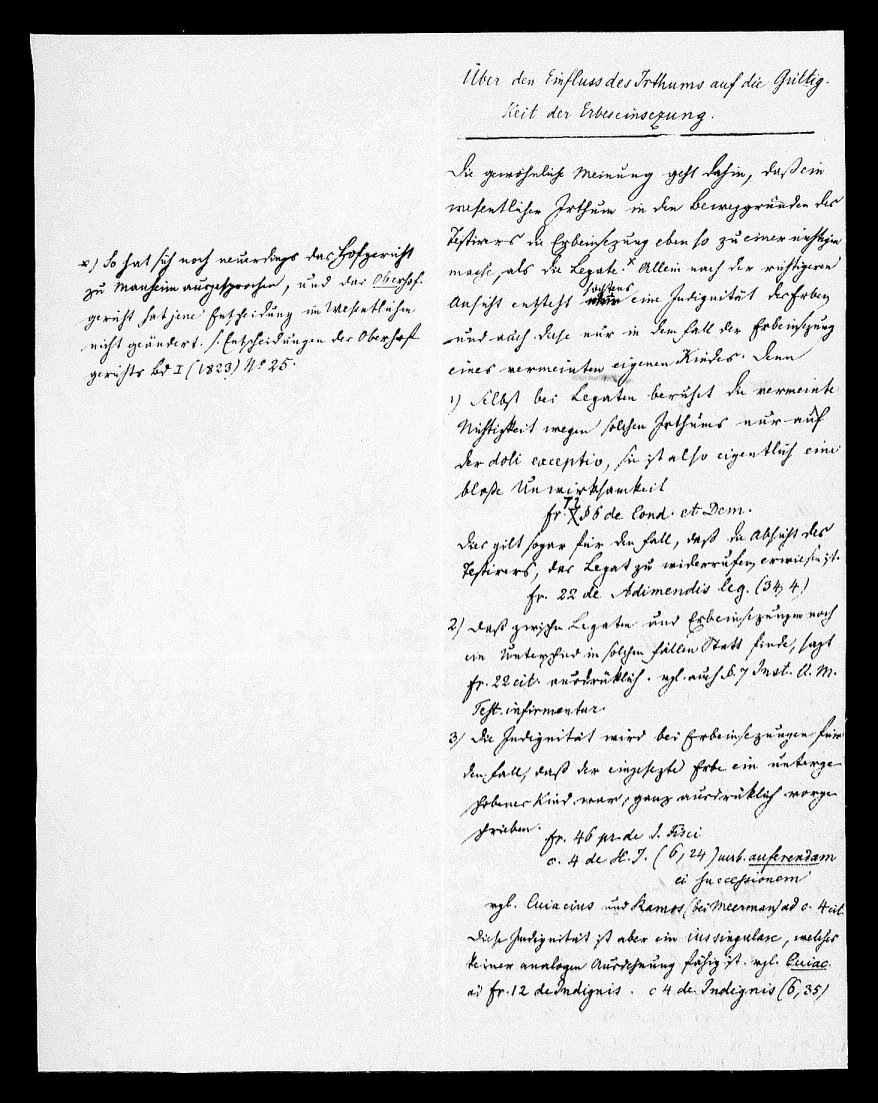 Über den Einfluss des Irthums auf die Gültig-
keit der Erbeseinsezung.
Die gewöhnliche Meinung geht dahin, daß ein
wesentlicher Irthum in den Beweggründen des
Testirers die Erbeinsezung eben so zu einer nichtigen
mache, als die Legate.* Allein nach der richtigeren
Ansicht entsteht höchstens eine Indignität des Erben
und auch diese nur in dem Fall der Erbeinsezung
eines vermeinten eigenen Kindes. Denn
1) Selbst bei Legaten beruhet die vermeinte
Nichtigkeit wegen solchen Irthums nur auf
der doli exceptio, sie ist also eigentlich eine
bloße Unwirksamkeit
fr. 72 § 6 de Cond. et Dem.
Dies gilt sogar für den Fall, daß die Absicht des
Testirers, das Legat zu widerrufen, erwiesen ist.
fr. 22 de Adimendis leg. (34, 4)
2) Daß zwischen Legaten und Erbeinsezungen noch
ein Unterschied in solchen Fällen Statt finde, sagt
fr. 22 cit. ausdrüklich. vgl. auch §. 7 Inst. Q. M.
Test. infirmentur.
3) Die Indignität wird bei Erbeinsezungen für
den Fall, daß der eingesezte Erbe ein unterge-
schobenes Kind war, ganz ausdrüklich vorge-
schrieben.
fr. 46 pr. de I. Fisci
c. 4 de H. I. (6, 24) verb. auferendam
ei successionem
vgl. Cuiacius und Ramos (bei Meerman) ad c. 4 cit.
Diese Indignität ist aber ein ius singulare, welches
keiner analogen Ausdehnung fähig ist. vgl. Cuiac.
ad fr. 12 de Indignis. c 4 de Indignis (6, 35)
*) So hat sich noch neuerdings das Hofgericht
zu Manheim ausgesprochen, und das Oberhof-
gericht hat jene Entscheidung im Wesentlichen
nicht geändert. s. Entscheidungen des Oberhof-
gerichts Bd I (1823) No 25.